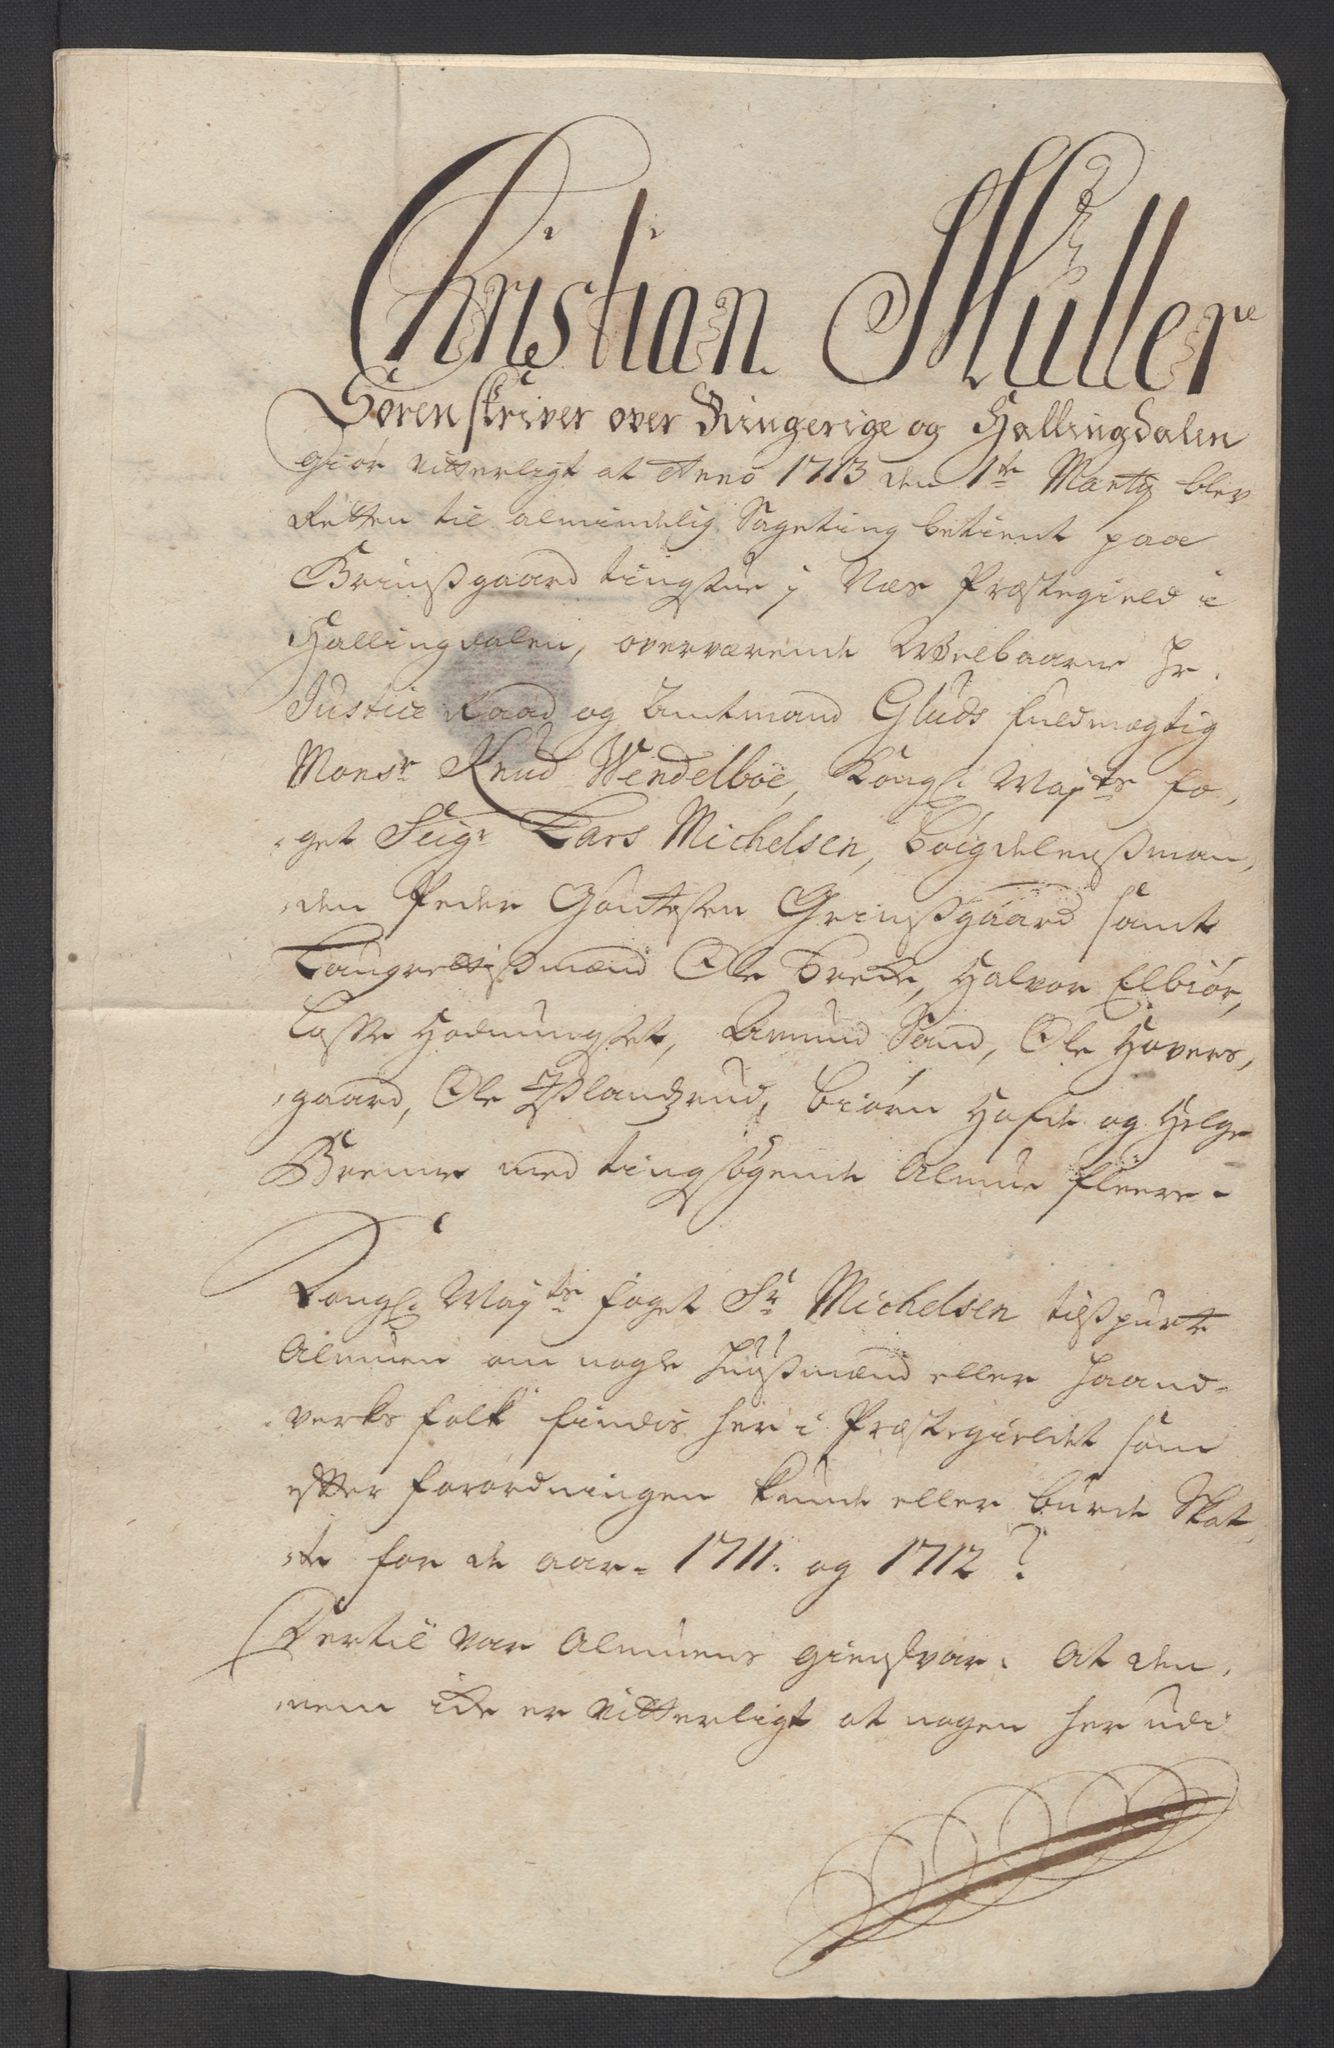 Christian Müller
Sorenskriver over Ringerige og Hallingdalen
giør vitterligt at Anno 1713 den 1te Marty blev
Retten til almindelig Sageting betient paa
Grinßgaard tingstue j Næs Præstegield i
Hallingdalen, overværende Welbaarne Hr.
Justice Raad og Amtmand Gluds fuldmægtig
Monsr Knud Wendelboe, Kongl: Mayts fo,
get Seigr Lars Michelsen, boigdelenßman,
den Peder Gontesen Grinßgaard samt
Laugrettißmænd Ole Brette, Halvor Elbiør,
Lasse Hodnungset, Amund Sand, Ole Hovers,
gaard, Ole Islandzrud, Biørn Hofde og Helge
Breme med tingsøgende Almue fleere.
Kongl: Mayts foget Sr Michelsen tilspurte
Almuen om nogle Hußmænd eller Haand,
verks folk findis her i Præstegieldet som
efter forordningen kunde eller burde Skat,
te for de aar. 1711. og 1712?
Dertil var Almuens giensvar. At den,
nem icke er vitterligt at nogen her udi